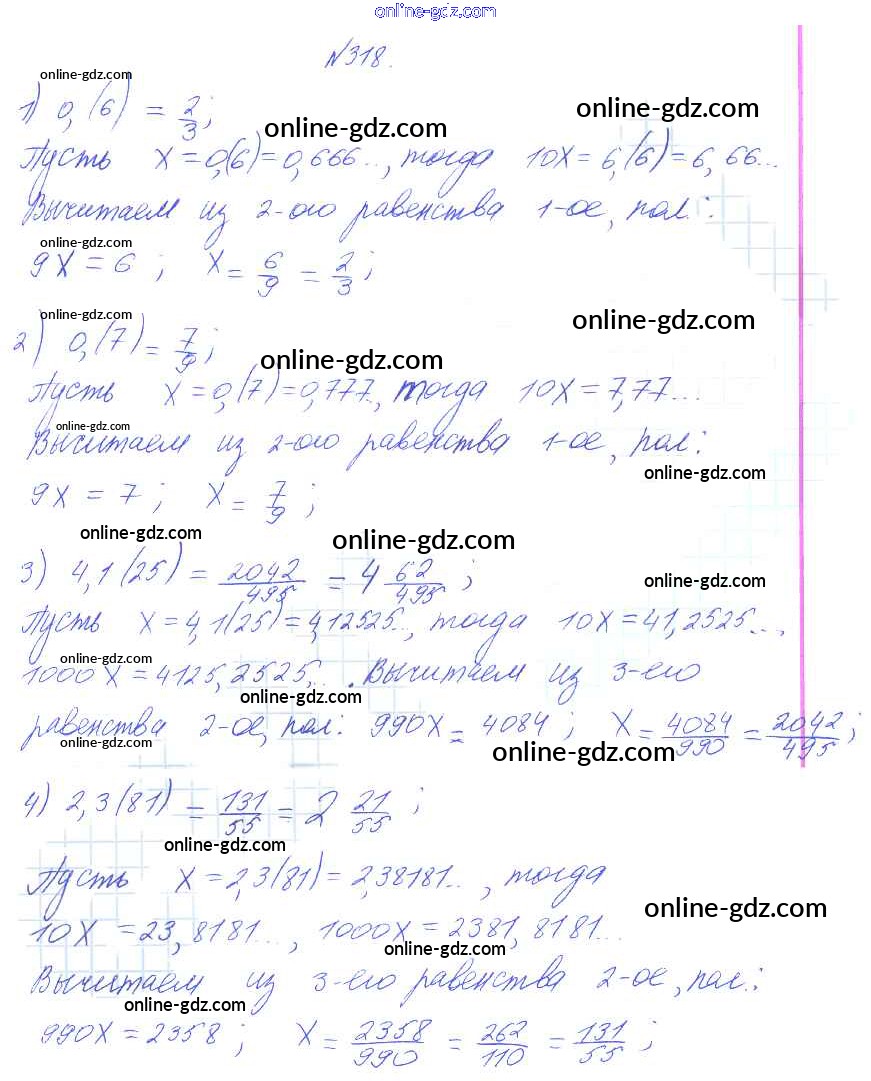 online-gdz.com
№318.
online-gdz.com
1) 0,(6) = 2/3;
online-gdz.com
online-gdz.com
Пусть x = 0,(6) = 0,666.., тогда 10x = 6,(6) = 6,66...
Вычитаем из 2-ого равенства 1-ое, пол.:
online-gdz.com
9x = 6; x = 6/9 = 2/3;
online-gdz.com
2) 0,(7) = 7/9;
online-gdz.com
Пусть x = 0,(7) = 0,777.., тогда 10x = 7,77...
online-gdz.com
Вычитаем из 2-ого равенства 1-ое, пол:
online-gdz.com
9x = 7; x = 7/9;
online-gdz.com
online-gdz.com
3) 4,1(25) = 2042/495 = 4 62/495;
online-gdz.com
Пусть x = 4,1(25) = 4,12525.., тогда 10x = 41,2525...,
online-gdz.com
1000x = 4125,2525... . Вычитаем из 3-его
online-gdz.com
равенства 2-ое, пол: 990x = 4084; x = 4084/990 = 2042/495;
online-gdz.com
online-gdz.com
4) 2,3(81) = 131/55 = 2 21/55;
online-gdz.com
Пусть x = 2,3(81) = 2,38181.., тогда
online-gdz.com
10x = 23,8181..., 1000x = 2381,8181...
online-gdz.com
Вычитаем из 3-его равенства 2-ое, пол.:
online-gdz.com
990x = 2358; x = 2358/990 = 262/110 = 131/55;